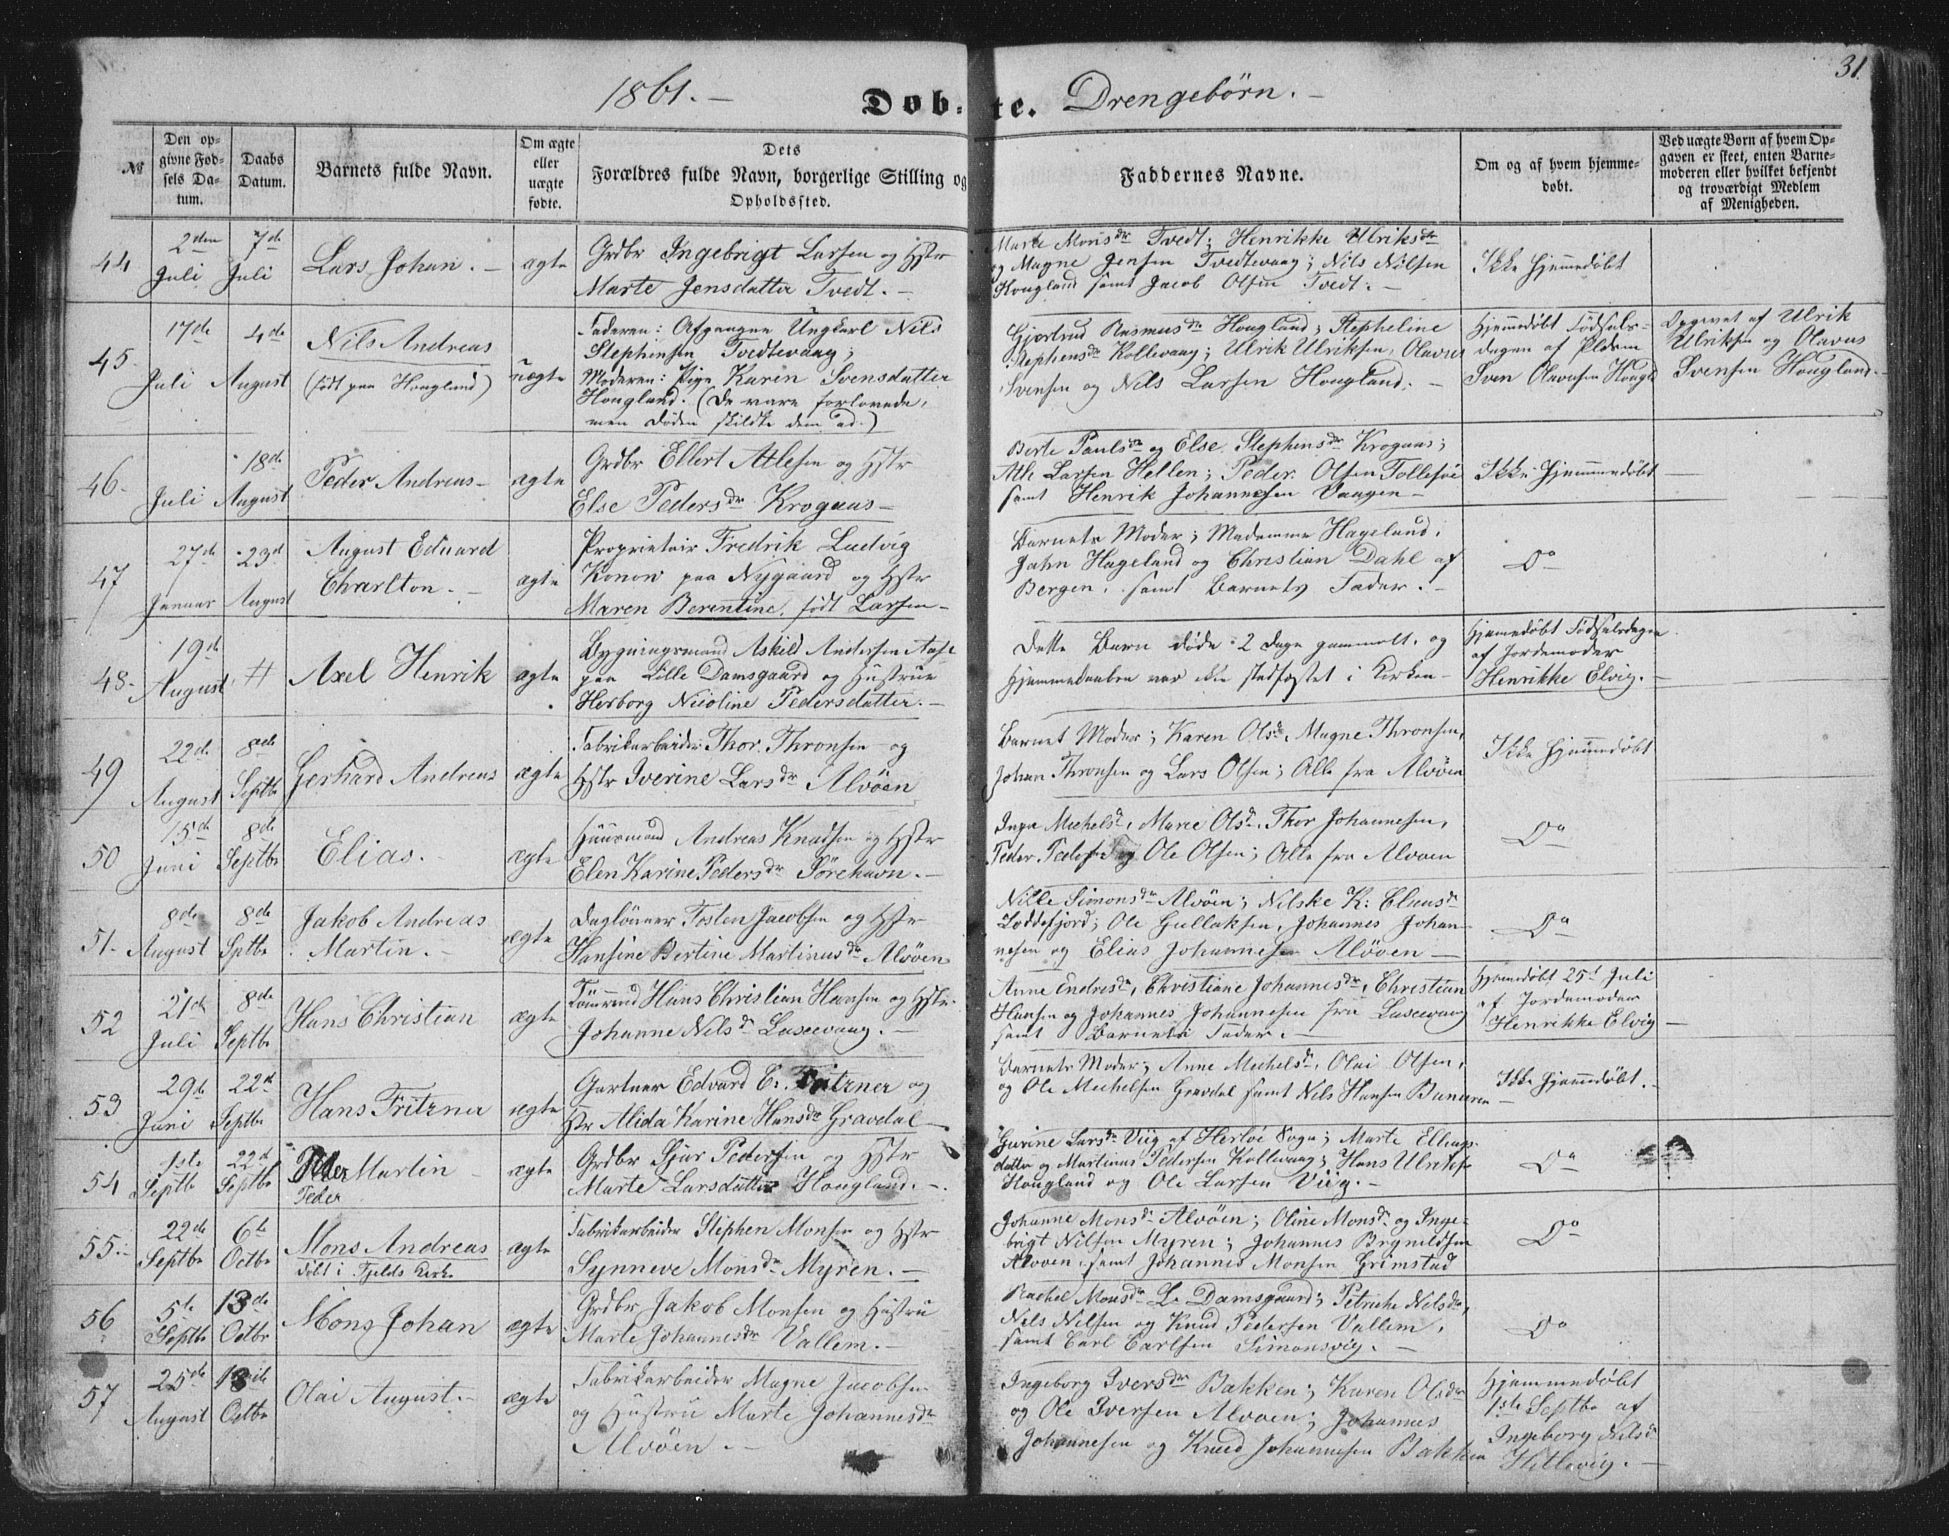 31
1861.- Dob- te. Drengebørn.-
№ Den op- givne Fød- sels Da- tum. Daabs Datum. Barnets fulde Navn. Om ægte eller uægte fødte. Dets Forældres fulde Navn, borgerlige Stilling og Opholdssted. Faddernes Navne. Om og af hvem hjemme- døbt. Ved uægte Børn af hvem Op- gaven er skeet, enten Barne- moderen eller hvilket bekjendt og troværdigt Medlem af Menigheden.
44 2den Juli 7de Juli Lars Johan.- ægte
Grdbr Ingebrigt Larsen og Hstr
Marte Jensdatter Tvedt.-
Marte Monsdr Tvedt; Henrikke Ulriksdr
og Magne Jensen Tvedtevaag; Nils Nilsen
Hougland samt Jacob Olsen Tvedt.-
Ikke hjemmedøbt
45. 17de Juli 4de August Nils Andreas
(født paa Hougland) uægte
Faderen: Afgangne Ungkarl Nils
Stephensen Tvedtevaag;
Moderen: Pige Karen Svensdatter
Hougland. (De vare forlovede,
men Døden skildte dem ad.)
Gjertrud Rasmusdr Hougland; Stepheline
Stephensdr Kollevaag; Ulrik Ulriksen, Olavus
Svensen og Nils Larsen Hougland.-
Hjemmedøbt Fødsels-
dagen af
Sven Olavesen Hougld
Opgivet af Ulrik
Ulriksen og Olavus
Svensen Hougland.
46- Juli 18de August Peder Andreas- ægte
Grdbr Ellert Atlesen og Hstr
Else Pedersdr Krogaas-
Berte Paulsdr og Else Stephensdr Krogaas;
Atle Larsen Hellen; Peder Olsen Tollefsøe
samt Henrik Johannesen Vaagen-
Ikke Hjemmedøbt
47 27de Januar 23d August August Eduard
Charlton.- ægte
Proprietair Fredrik Ludvig
Konow paa Nygaard og Hstr
Maren Berentine, født Larsen-
Barnets Moder; Madamme Hageland,
Jahn Hageland og Christian Dahl af
Bergen, samt Barnets Fader.-
Do
48- 19d August # Axel Henrik ægte
Bygningsmand Askild Andersen Aase
paa Lille Damsgaard og Hustrue
Herborg Nicoline Pedersdatter.-
Dette Barn døde 2 Dage gammelt, og
Hjemmedaaben var ikke stadfæstet i Kirken-
Hjemmedøbt Fødselsdagen
af Jordemoder
Henrikke Elvig.-
49 22de August 8de Septbr Gerhard Andreas ægte
Fabrikarbeider Thor Thronsen og
Hstr Iverine Larsdr Alvøen
Barnet Moder; Karen Olsd, Magne Thronsen,
Johan Thronsen og Lars Olsen; Alle fra Alvøen
Ikke hjemmedøbt
50 15d Juni 8de Septbr Elias.- ægte
Huusmand Andreas Knudsen og Hstr
Elen Karine Pedersdr Sørehavn.-
Inga Michelsd, Marie Olsd, Thor Johannesen,
Peder Pedersen og Ole Olsen; Alle fra Alvøen
Do
51- 8de August 8de Sptbr Jakob Andreas
Martin.- ægte
Dagløiner Tosten Jacobsen og Hstr
Hansine Bertine Martinusdr Alvøen
Nille Simonsdr Alvøen; Nilske K. Clausdr
Loddefjord; Ole Gullaksen, Johannes Johan-
nesen og Elias Johannesen Alvøen-
Do
52 21de Juli 8de Septbr Hans Christian ægte
Tømrmd Hans Christian Hansen og Hstr
Johanne Nilsdr Lasevaag.-
Anne Endresdr, Christiane Johannesdr, Christian
Hansen og Johannes Johannesen fra Lasevaag
samt Barnets Fader.-
Hjemmedøbt 25d Juli
af Jordemoder
Henrikke Elvig-
53 29d Juni 22d Septbr Hans Fritzner ægte
Gartner Edvard C. Fritzner og
Hstr Alida Karine Hansdr Gravdal-
Barnets Moder; Anne Michelsdr, Olai Olsen,
og Ole Michelsen Gravdal samt Nils Hansen Bunæren-
Ikke hjemmedøbt.
54 1ste Septbr 22d Septbr Peder Martin
Peder ægte
Grdbr Sjur Pedersen og Hstr
Marte Larsdatter Hougland.-
Gurine Larsdr Viig af Herløe Sogn; Marte Ellings-
datter og Martinus Pedersen Kollevaag; Hans Ulriksen
Hougland og Ole Larsen Viig.-
Do
55- 22de Septbr 6te Octbr Mons Andreas
døbt i Fjelds Kirke ægte
Fabrikarbeider Stephen Monsen og Hstr
Synneve Monsdr Myren.-
Johanne Monsdr Alvøen; Oline Monsdr og Inge-
brigt Nilsen Myren; Johannes Brynildsen
Alvøen, samt Johannes Monsen Grimstad
Do
56 5te Septbr 13de Octbr Mons Johan ægte
Grdbr Jakob Monsen og Hustru
Marte Johannesdr Vallem.-
Rachel Monsdr Le Damsgaard; Petriche Nilsdr,
Nils Nilsen og Knud Pedersen Vallem,
samt Carl Carlsen Simonsvig.-
Do
57 25de August 13de Octbr Olai August.- ægte
Fabrikarbeider Magne Jacobsen
og Hustru Marte Johannesdr
Alvøen.-
Ingeborg Iversdr Bakken; Karen Olsdr
og Ole Iversen Alvøen; Johannes
Johannesen og Knud Johannesen Bakken
Hjemmedøbt
1ste Septbr af
Ingeborg Nilsd
Hillevig.-